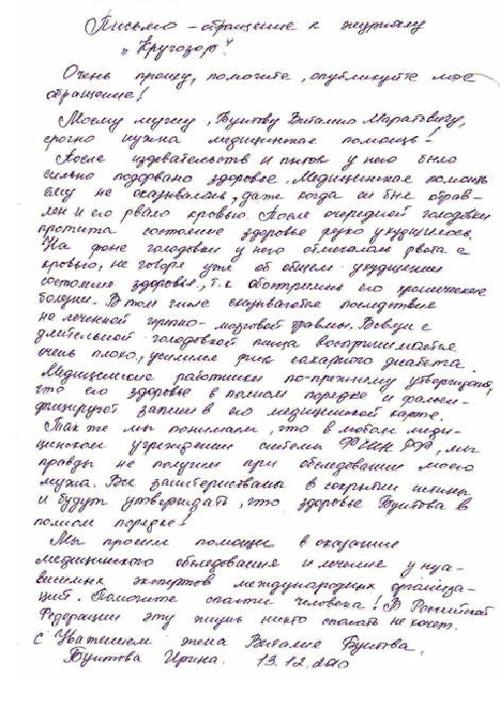 Письмо - обращение к журналу
"Кругозор".
Очень прошу, помогите, опубликуйте мое
обращение!
Моему мужу, Бунтову Виталию Маратовичу,
срочно нужна медицинская помощь!
После издевательств и пыток у него было
сильно подорвано здоровье. Медицинская помощь
ему не оказывалась, даже когда он был отрав-
лен и его рвало кровью. После очередной голодовки
протеста состояние здоровья резко ухудшилось.
На фоне голодовки у него отмечалась рвота с
кровью, не говоря уже об общем ухудшении
состояния здоровья, т.к. обострение его хронические
болезни. В том числе сказывается последствие
не леченной черепно-мозговой травмы. В связи с
длительной голодовкой пища воспринимается
очень плохо, усилился риск сахарного диабета.
Медицинские работники по-прежнему утверждают,
что его здоровье в полном порядке и фальси-
фицируют записи в его медицинской карте.
Так же мы понимаем, что в любом меди-
цинском учреждении системы ФСИН РФ, мы
правды не получим при обследовании моего
мужа. Все заинтересованы в сокрытии истины
и будут утверждать, что здоровье Бунтова в
полном порядке!
Мы просим помощи в оказании
медицинского обследования и лечения у неза-
висимых экспертов международных организа-
ций. Помогите спасти человека! В Российской
Федерации эту жизнь никто спасать не хочет.
С Уважением жена Виталия Бунтова,
Бунтова Ирина. 13.12.2010